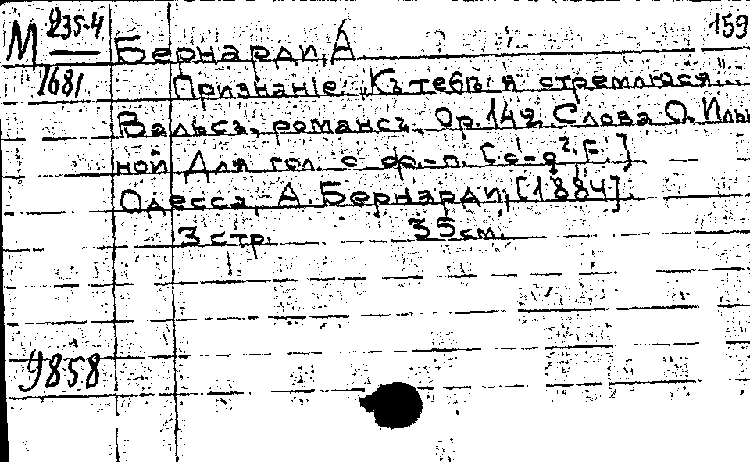 М 235-4
1681
159
Бернарди, А.
Признаніе. „Къ тебѣ я стремлюся..."
Вальсъ, романсъ. Ор. 142. Слова О. Ильи-
ной Для гол. с фр.-п. [c¹-g². F.]
Одесса, А. Бернарди, [1884].
3 стр. 35 см.
9858